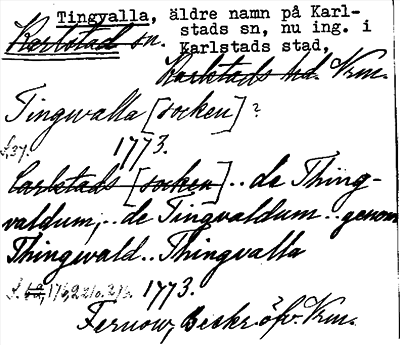 Tingvalla, äldre namn på Karl-
Karlstad sn. stads sn, nu ing. i
Karlstads stad,
Karlstads hd. Vrm.
Tingwalla [socken]?
s. 37. 1773.
Carlstads [socken].. de Thing-
valdum,.. de Tingvaldum.. genom
Thingwald.. Thingvalla
1773.
Fernow, Beskr. öfv. Vrm.